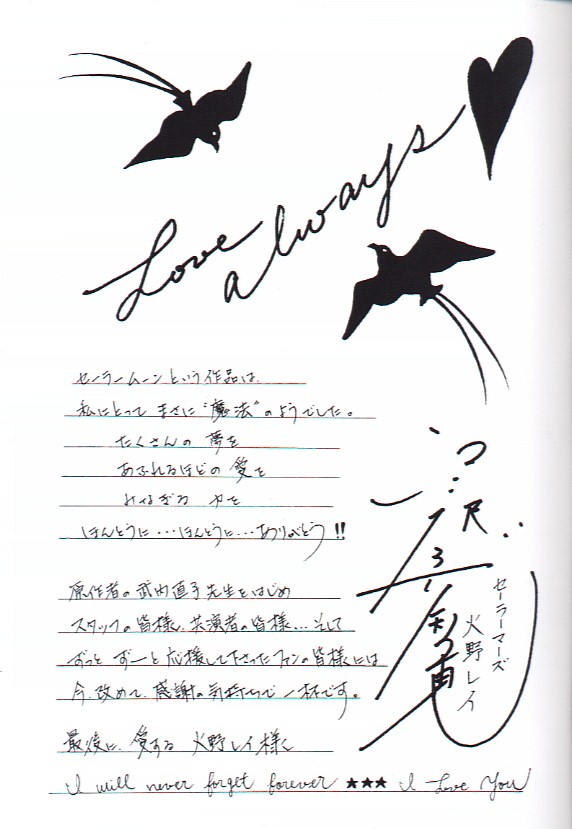 Love always
セーラームーンという作品は
私にとって まさに"魔法"のようでした。
たくさんの 夢を
あふれるほどの 愛を
みなぎる 力を
ほんとうに…ほんとうに…ありがとう!!
原作者の武内直子先生をはじめ
スタッフの皆様、共演者の皆様…そして
ずっと ずーっと応援して下さったファンの皆様には
今、改めて、感謝の気持ちで一杯です。
最後に、愛する 火野レイ様へ
I will never forget forever ★★★ I Love You
セーラーマーズ
火野レイ